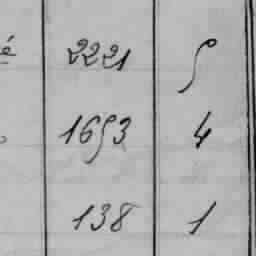 é 2221 5
1653 4
138 1